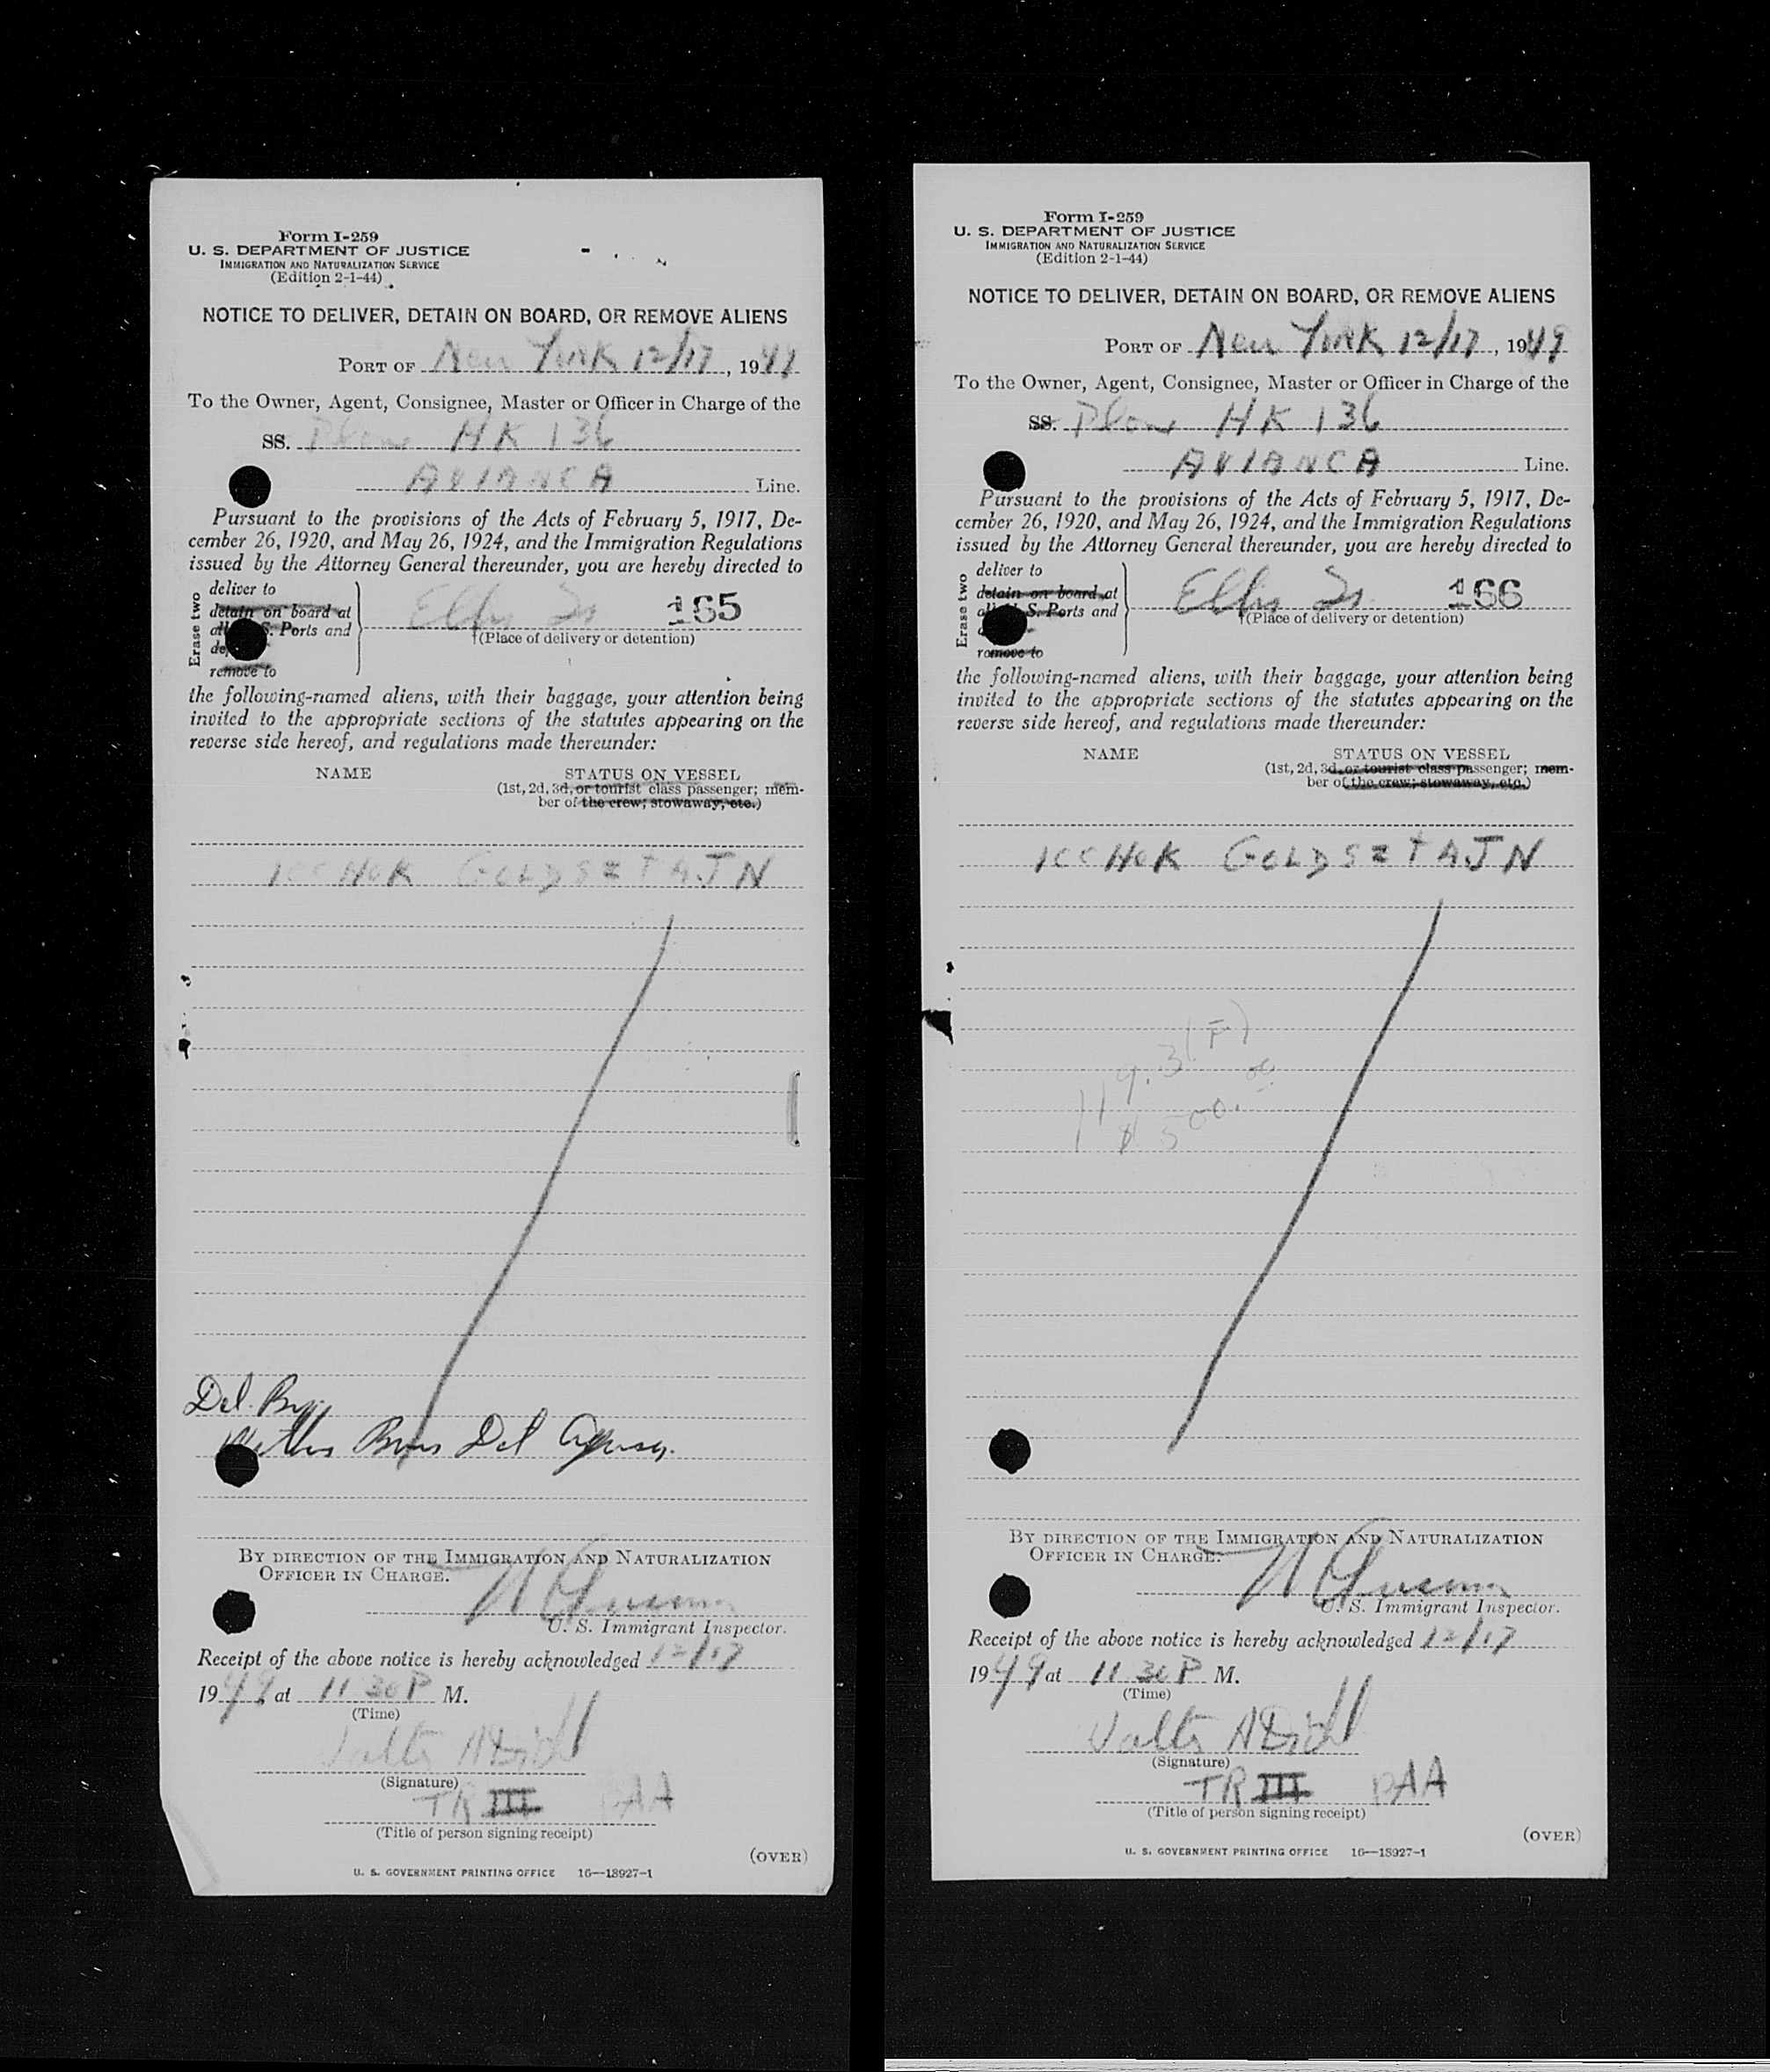 Form I-259
U. S. DEPARTMENT OF JUSTICE
IMMIGRATION AND NATURALIZATION SERVICE
(Edition 2-1-44)
NOTICE TO DELIVER, DETAIN ON BOARD, OR REMOVE ALIENS
PORT OF New York 12/17, 1949
To the Owner, Agent, Consignee, Master or Officer in Charge of the
SS. Plane HK 136
AVIANCA Line.
Pursuant to the provisions of the Acts of February 5, 1917, De-
cember 26, 1920, and May 26, 1924, and the Immigration Regulations
issued by the Attorney General thereunder, you are hereby directed to
Erase two
deliver to
detain on board at
all U. S. Ports and
remove to
Ellis Is 165
(Place of delivery or detention)
the following-named aliens, with their baggage, your attention being
invited to the appropriate sections of the statutes appearing on the
reverse side hereof, and regulations made thereunder:
NAME STATUS ON VESSEL
(1st, 2d, 3d, or tourist class passenger; mem-
ber of the crew; stowaway, etc.)
ICCHOK GOLDSZTAJN
Del. By
Bros Del Agency
BY DIRECTION OF THE IMMIGRATION AND NATURALIZATION
OFFICER IN CHARGE.
U. S. Immigrant Inspector.
Receipt of the above notice is hereby acknowledged 12/17
1949 at 11 30 P M.
(Time)
Walter
(Signature)
TR III PAA
(Title of person signing receipt)
(OVER)
U. S. GOVERNMENT PRINTING OFFICE 16—18927-1
Form I-259
U. S. DEPARTMENT OF JUSTICE
IMMIGRATION AND NATURALIZATION SERVICE
(Edition 2-1-44)
NOTICE TO DELIVER, DETAIN ON BOARD, OR REMOVE ALIENS
PORT OF New York 12/17, 1949
To the Owner, Agent, Consignee, Master or Officer in Charge of the
SS. Plane HK 136
AVIANCA Line.
Pursuant to the provisions of the Acts of February 5, 1917, De-
cember 26, 1920, and May 26, 1924, and the Immigration Regulations
issued by the Attorney General thereunder, you are hereby directed to
Erase two
deliver to
detain on board at
all U. S. Ports and
remove to
Ellis Is 166
(Place of delivery or detention)
the following-named aliens, with their baggage, your attention being
invited to the appropriate sections of the statutes appearing on the
reverse side hereof, and regulations made thereunder:
NAME STATUS ON VESSEL
(1st, 2d, 3d, or tourist class passenger; mem-
ber of the crew; stowaway, etc.)
ICCHOK GOLDSZTAJN
119.3(F)
$500.00
BY DIRECTION OF THE IMMIGRATION AND NATURALIZATION
OFFICER IN CHARGE.
U. S. Immigrant Inspector.
Receipt of the above notice is hereby acknowledged 12/17
1949 at 11 30 P M.
(Time)
Walter
(Signature)
TR III PAA
(Title of person signing receipt)
(OVER)
U. S. GOVERNMENT PRINTING OFFICE 16—18927-1